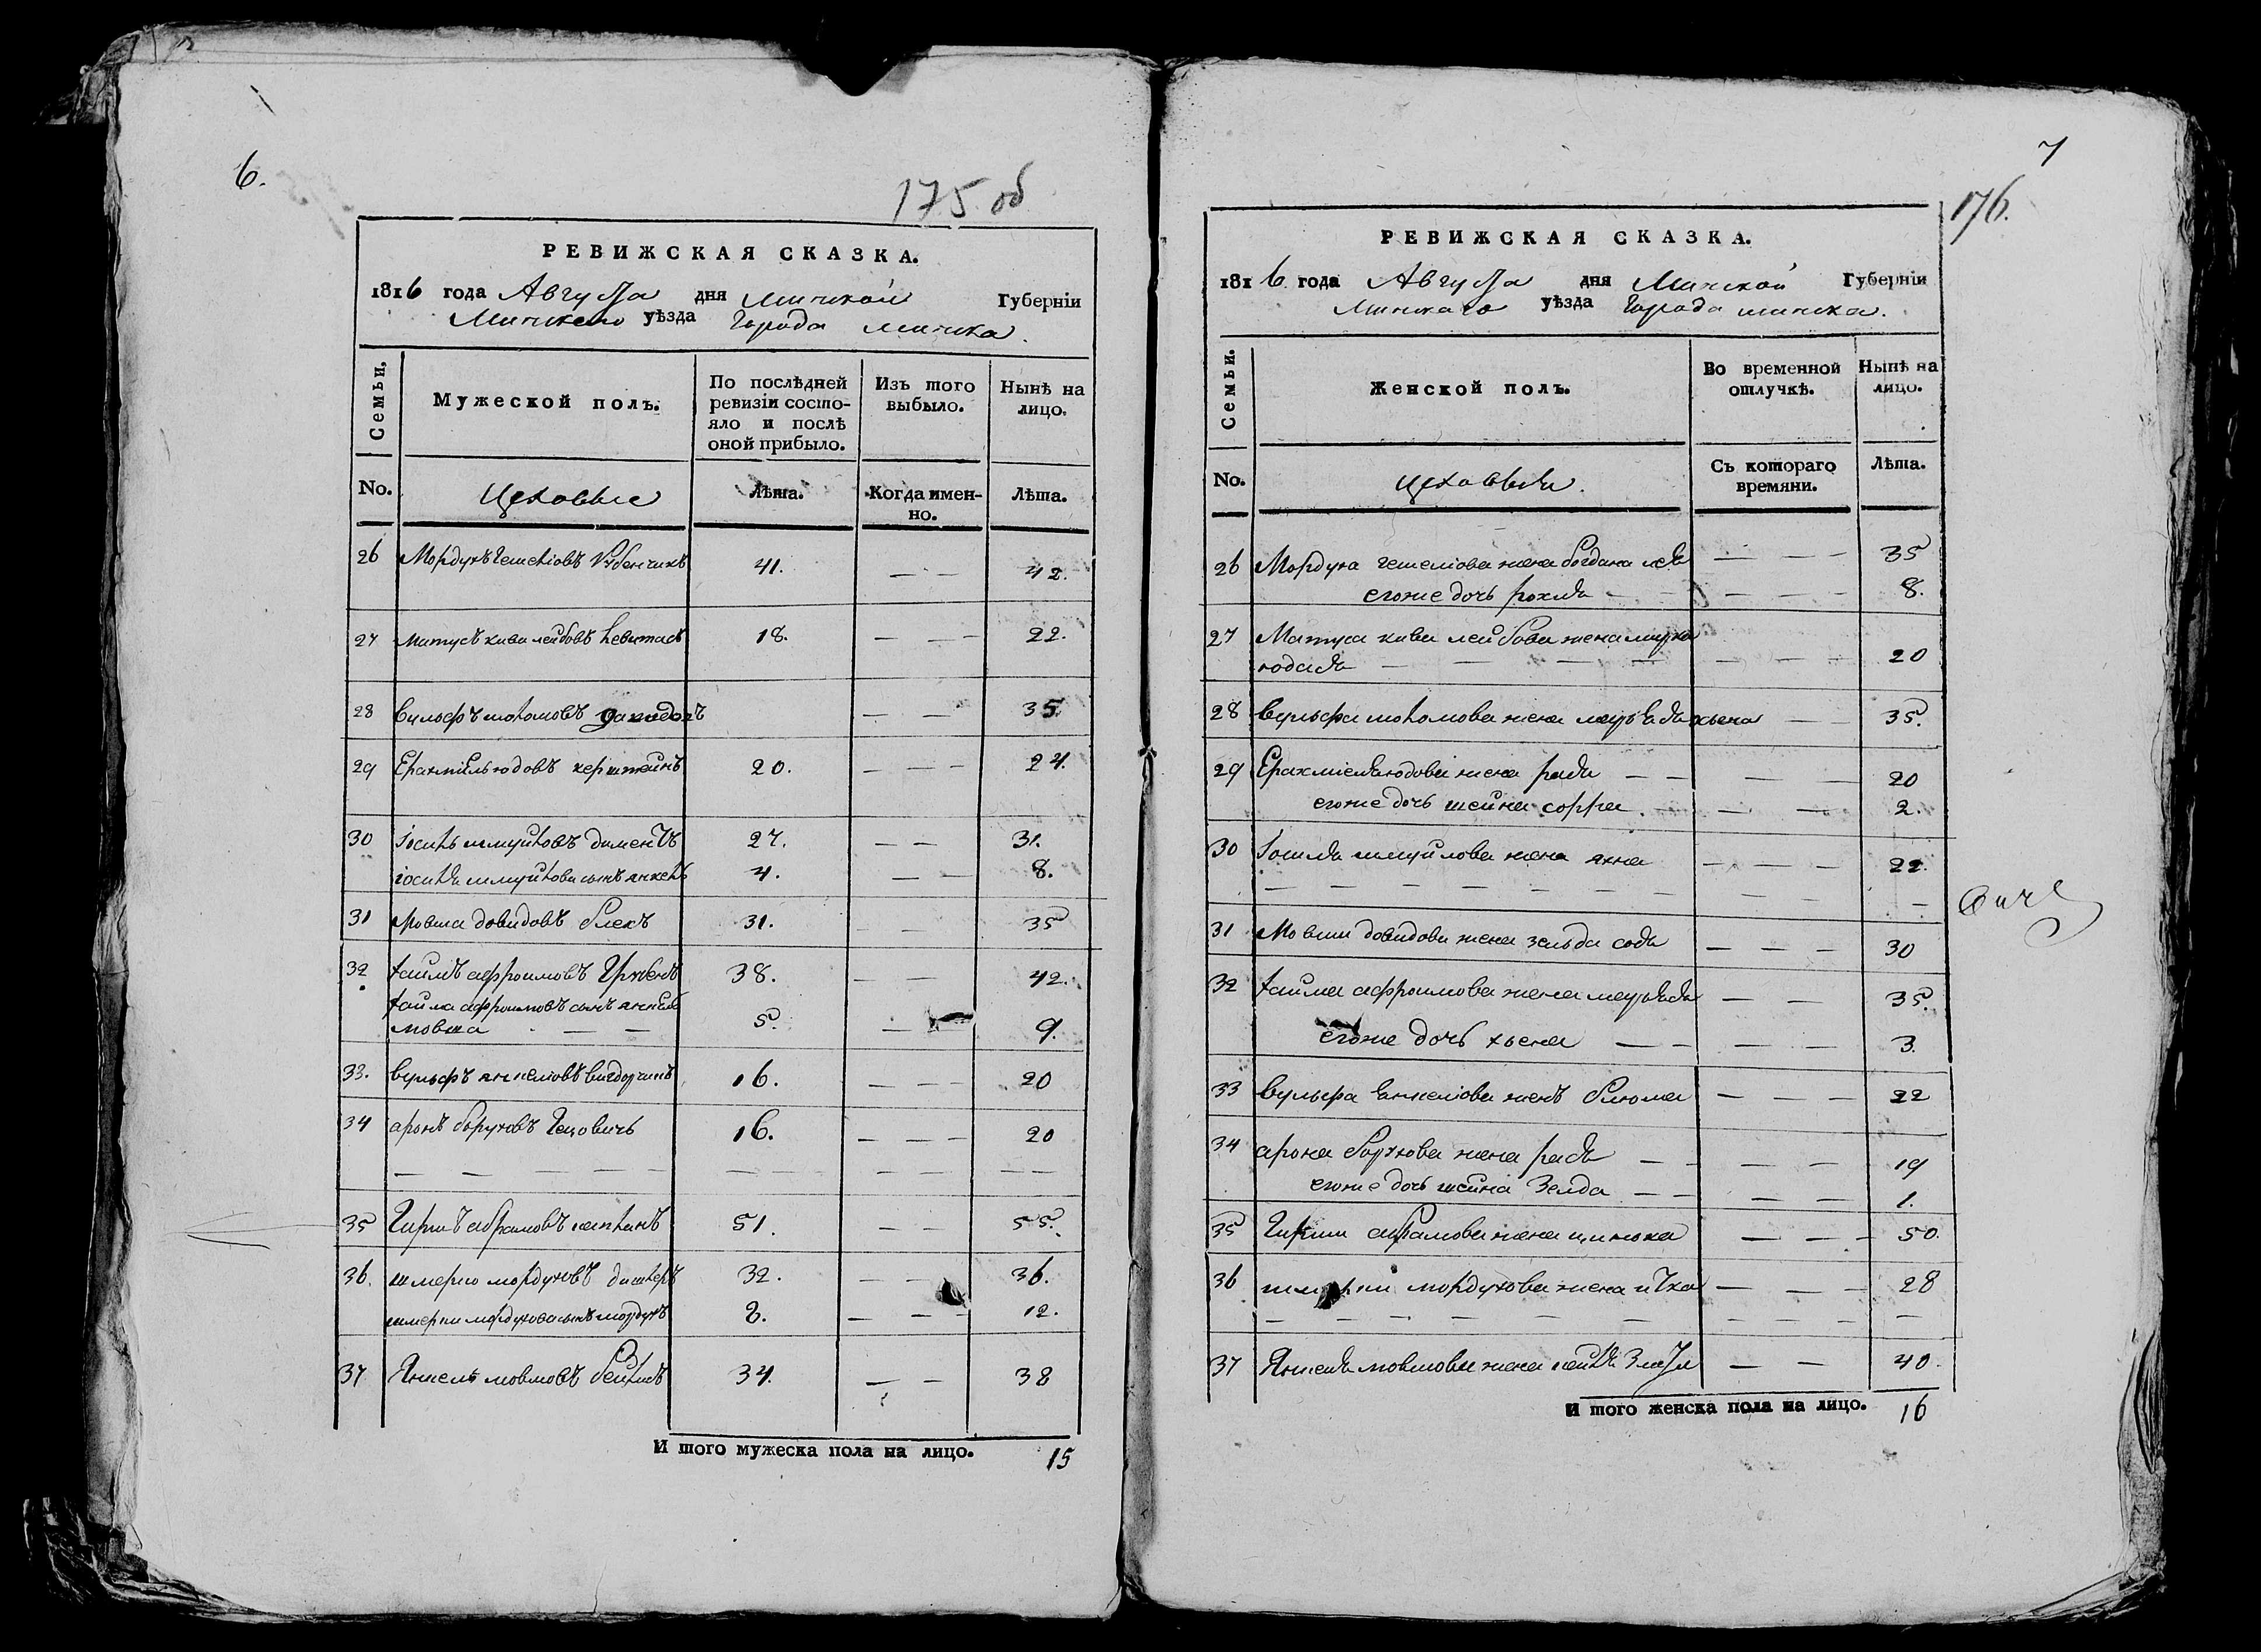 6.
175 об
РЕВИЖСКАЯ СКАЗКА.
1816 года Августа дня Минской Губерніи
Минского уѣзда Города Минска.
Семьи.
Мужеской полъ.
По послѣдней ревизіи состо-
яло и послѣ оной прибыло.
Изъ того выбыло.
Нынѣ на лицо.
No.
Цеховые
Лѣта.
Когда имен-
но.
Лѣта.
26 Мордухъ Гешеліовъ Рубенчикъ 41. — — 42.
27 Матусъ кива лейбовъ Левитасъ 18. — — 22.
28 Вульфъ шоломовъ — — 35
29 Ерахміель юдовъ керштейнъ 20. — — — 24.
30 Іосиль шмуйловъ диментъ 27. — — 31.
іосиля шмуйлова сынъ янкель 4. — — 8.
31 Мовша довидовъ блехъ 31. — — 35
32 хаимъ афроимовъ 38. — — 42.
хаима афроимовъ сынъ янкель
мовша — — 5. — — 9.
33. Вульфъ янкеліовъ вигдорчикъ 16. — — — 20
34 аронъ боруховъ Гецовичъ 16. — — — 20
35 Гиршъ абрамовъ капланъ 51. — — 55.
36. шмерко мордуховъ 32. — — 36.
шмерки мордухова сынъ мордухъ 8. — — — 12.
37 Янкель мовшовъ 34. — — 38
И того мужеска пола на лицо. 15
7
176.
РЕВИЖСКАЯ СКАЗКА.
1816 года Августа дня Минской Губерніи
Минскаго уѣзда Города минска.
Семьи.
Женской полъ.
Во временной отлучкѣ.
Нынѣ на лицо.
No.
Цеховыя.
Съ котораго времяни.
Лѣта.
26 Мордуха гешеліова жена богдана лея — — — 35
егоже дочь рохля — — — — 8.
27 Матуса кива лейбова жена мирка
юдася — — — — — — — 20
28 Вульфа шоломова жена марьяся хьена — — 35.
29 Ерахміеля юдова жена рася — — — — 20
егоже дочь шейна сорра — — 2.
30 Іосиля шмуйлова жена яхна — — — 22.
31 Мовши довидова жена зельда сося — — — 30
32 хаима афроимова жена марьяся — — 35.
егоже дочь хьена — — — — 3.
33 Вульфа янкеліова женъ блюма — — — 22
34 арона борухова жена рася — — — — 19
егоже дочь шейна Зелда — — — — 1.
35 Гирши абрамова жена ципка — — — 50.
36 шмерки мордухова жена итка — — — 28
37 Янкеля мовшовы жена лейя Злата — — 40.
И того женска пола на лицо. 16